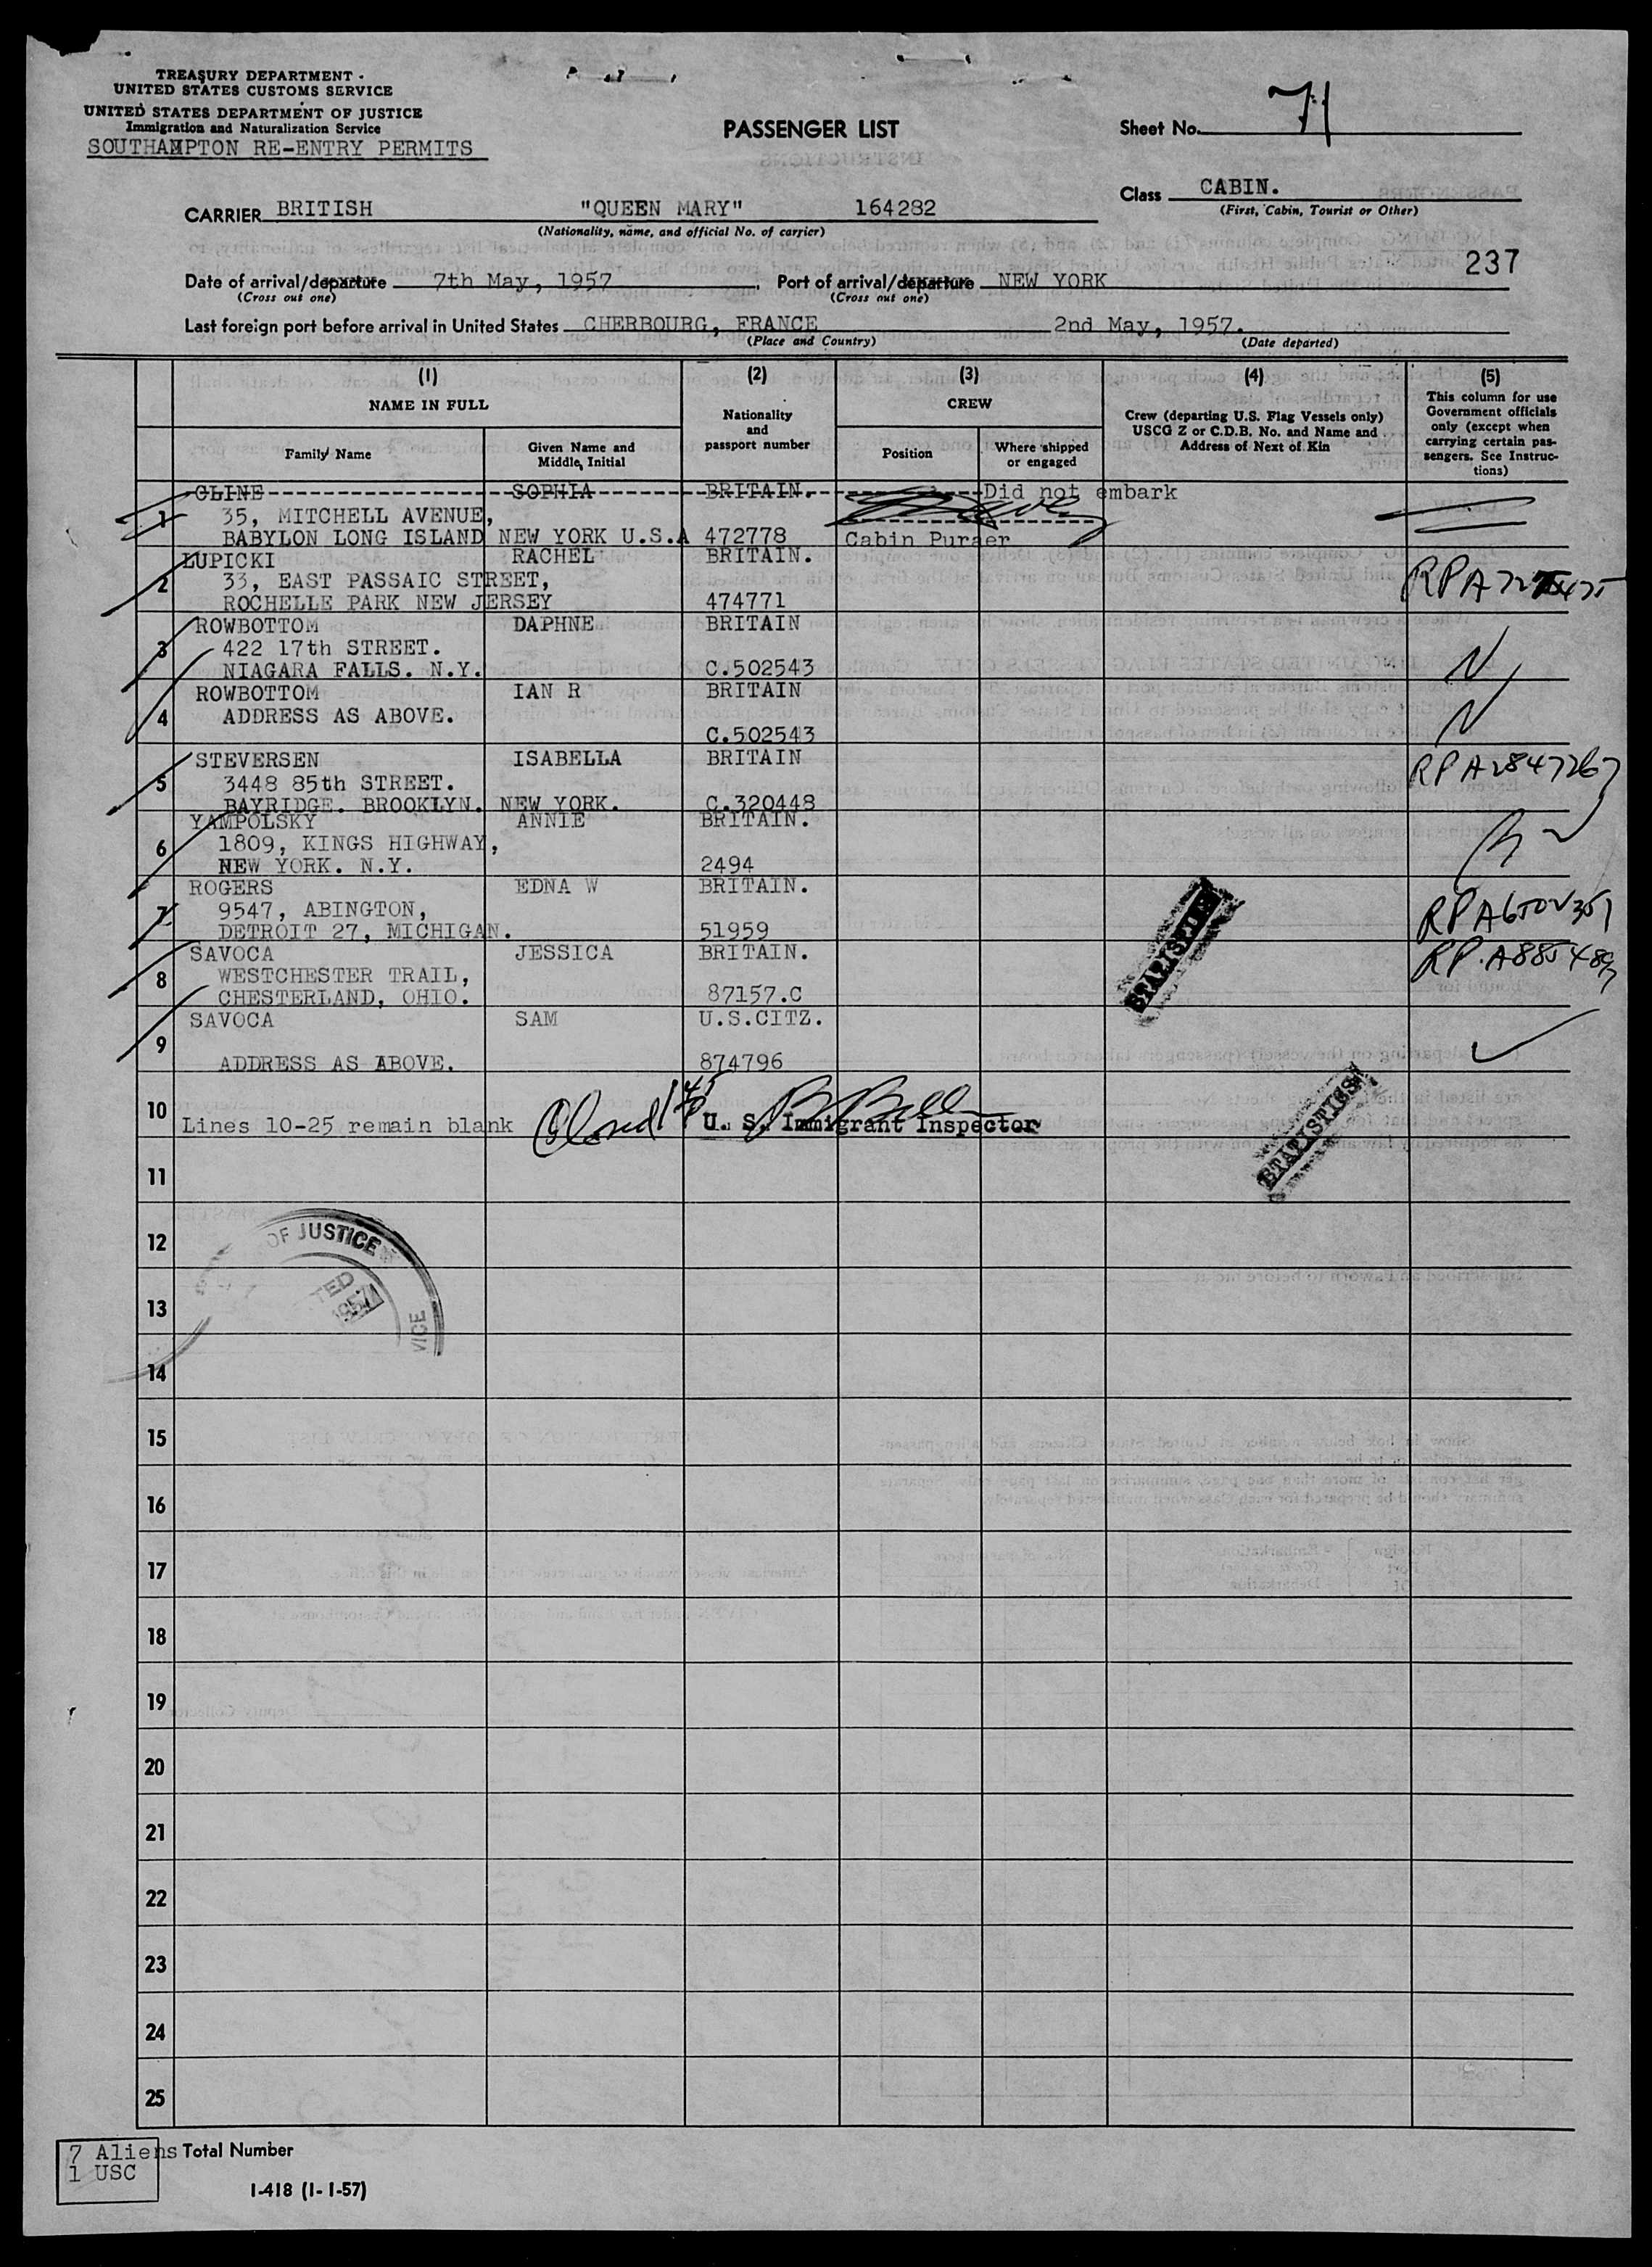 TREASURY DEPARTMENT
UNITED STATES CUSTOMS SERVICE
UNITED STATES DEPARTMENT OF JUSTICE
Immigration and Naturalization Service
SOUTHAMPTON RE-ENTRY PERMITS
PASSENGER LIST
Sheet No. 71
Class CABIN.
(First, Cabin, Tourist or Other)
CARRIER BRITISH "QUEEN MARY" 164282
(Nationality, name, and official No. of carrier)
237
Date of arrival/departure 7th May, 1957. Port of arrival/departure NEW YORK
(Cross out one) (Cross out one)
Last foreign port before arrival in United States CHERBOURG, FRANCE 2nd May, 1957.
(Place and Country) (Date departed)
(1) (2) (3) (4) (5)
NAME IN FULL
Family Name
Given Name and Middle Initial
Nationality and passport number
CREW
Position
Where shipped or engaged
Crew (departing U.S. Flag Vessels only)
USCG Z or C.D.B. No. and Name and
Address of Next of Kin
This column for use
Government officials
only (except when
carrying certain pas-
sengers. See Instruc-
tions)
1 CLINE SOPHIA BRITAIN. Did not embark
35, MITCHELL AVENUE,
BABYLON LONG ISLAND NEW YORK U.S.A 472778 Cabin Purser
2 LUPICKI RACHEL BRITAIN.
33, EAST PASSAIC STREET,
ROCHELLE PARK NEW JERSEY 474771
RPA
3 ROWBOTTOM DAPHNE BRITAIN
422 17th STREET.
NIAGARA FALLS. N.Y. C.502543 N
4 ROWBOTTOM IAN R BRITAIN
ADDRESS AS ABOVE. N
C.502543
5 STEVERSEN ISABELLA BRITAIN RPA2847267
3448 85th STREET.
BAYRIDGE. BROOKLYN. NEW YORK. C.320448
6 YAMPOLSKY ANNIE BRITAIN.
1809, KINGS HIGHWAY,
NEW YORK. N.Y. 2494
7 ROGERS EDNA W BRITAIN.
9547, ABINGTON,
DETROIT 27, MICHIGAN. 51959
8 SAVOCA JESSICA BRITAIN.
WESTCHESTER TRAIL,
CHESTERLAND, OHIO. 87157.C
9 SAVOCA SAM U.S.CITZ.
ADDRESS AS ABOVE. 874796
STATISTICS
10 Lines 10-25 remain blank U. S. Immigrant Inspector
STATISTICS
11
12
OF JUSTICE
13
1957
VICE
14
15
16
17
18
19
20
21
22
23
24
25
7 Aliens Total Number
1 USC
I-418 (1-1-57)